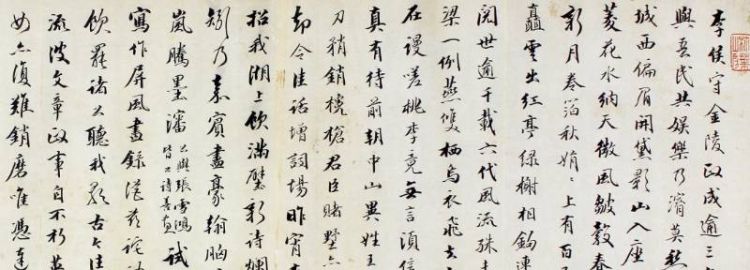 李侯守金陵政成逾三
與吾民共娛樂乃濬莫愁
城西偏眉開黛影山入座
菱花水納天微風皺縠春
新月卷箔秋娟娟上有百
矗雲出紅亭綠榭相鉤連
閱世逾千載六代風流殊
梁一例燕雙栖烏衣飛去
在謾嗟桃李竟無言須信
真有待前朝中山異姓王
刀稍銷欃槍君臣賭墅
却令佳話增詞場昨宵
招我湖上飲滿壁新詩爛
矧乃嘉賓盡豪翰胸
嵐騰墨瀋 公與張雪鴻皆 試
寫作屏風畫錄從茲
飲罷諸公聽我歌古今
流波文章政事自不朽
毋亦復難銷磨唯憑